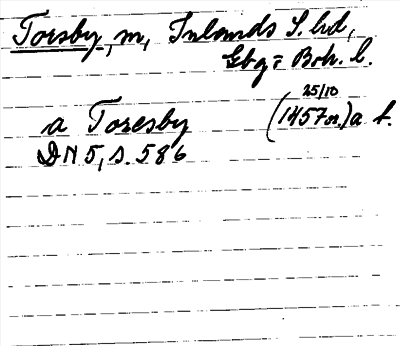 Torsby, m, Inlands S. hd,
Gbg = Boh. l.
25/10
a Toresby (1457 or.) a f.
DN 5, s. 586